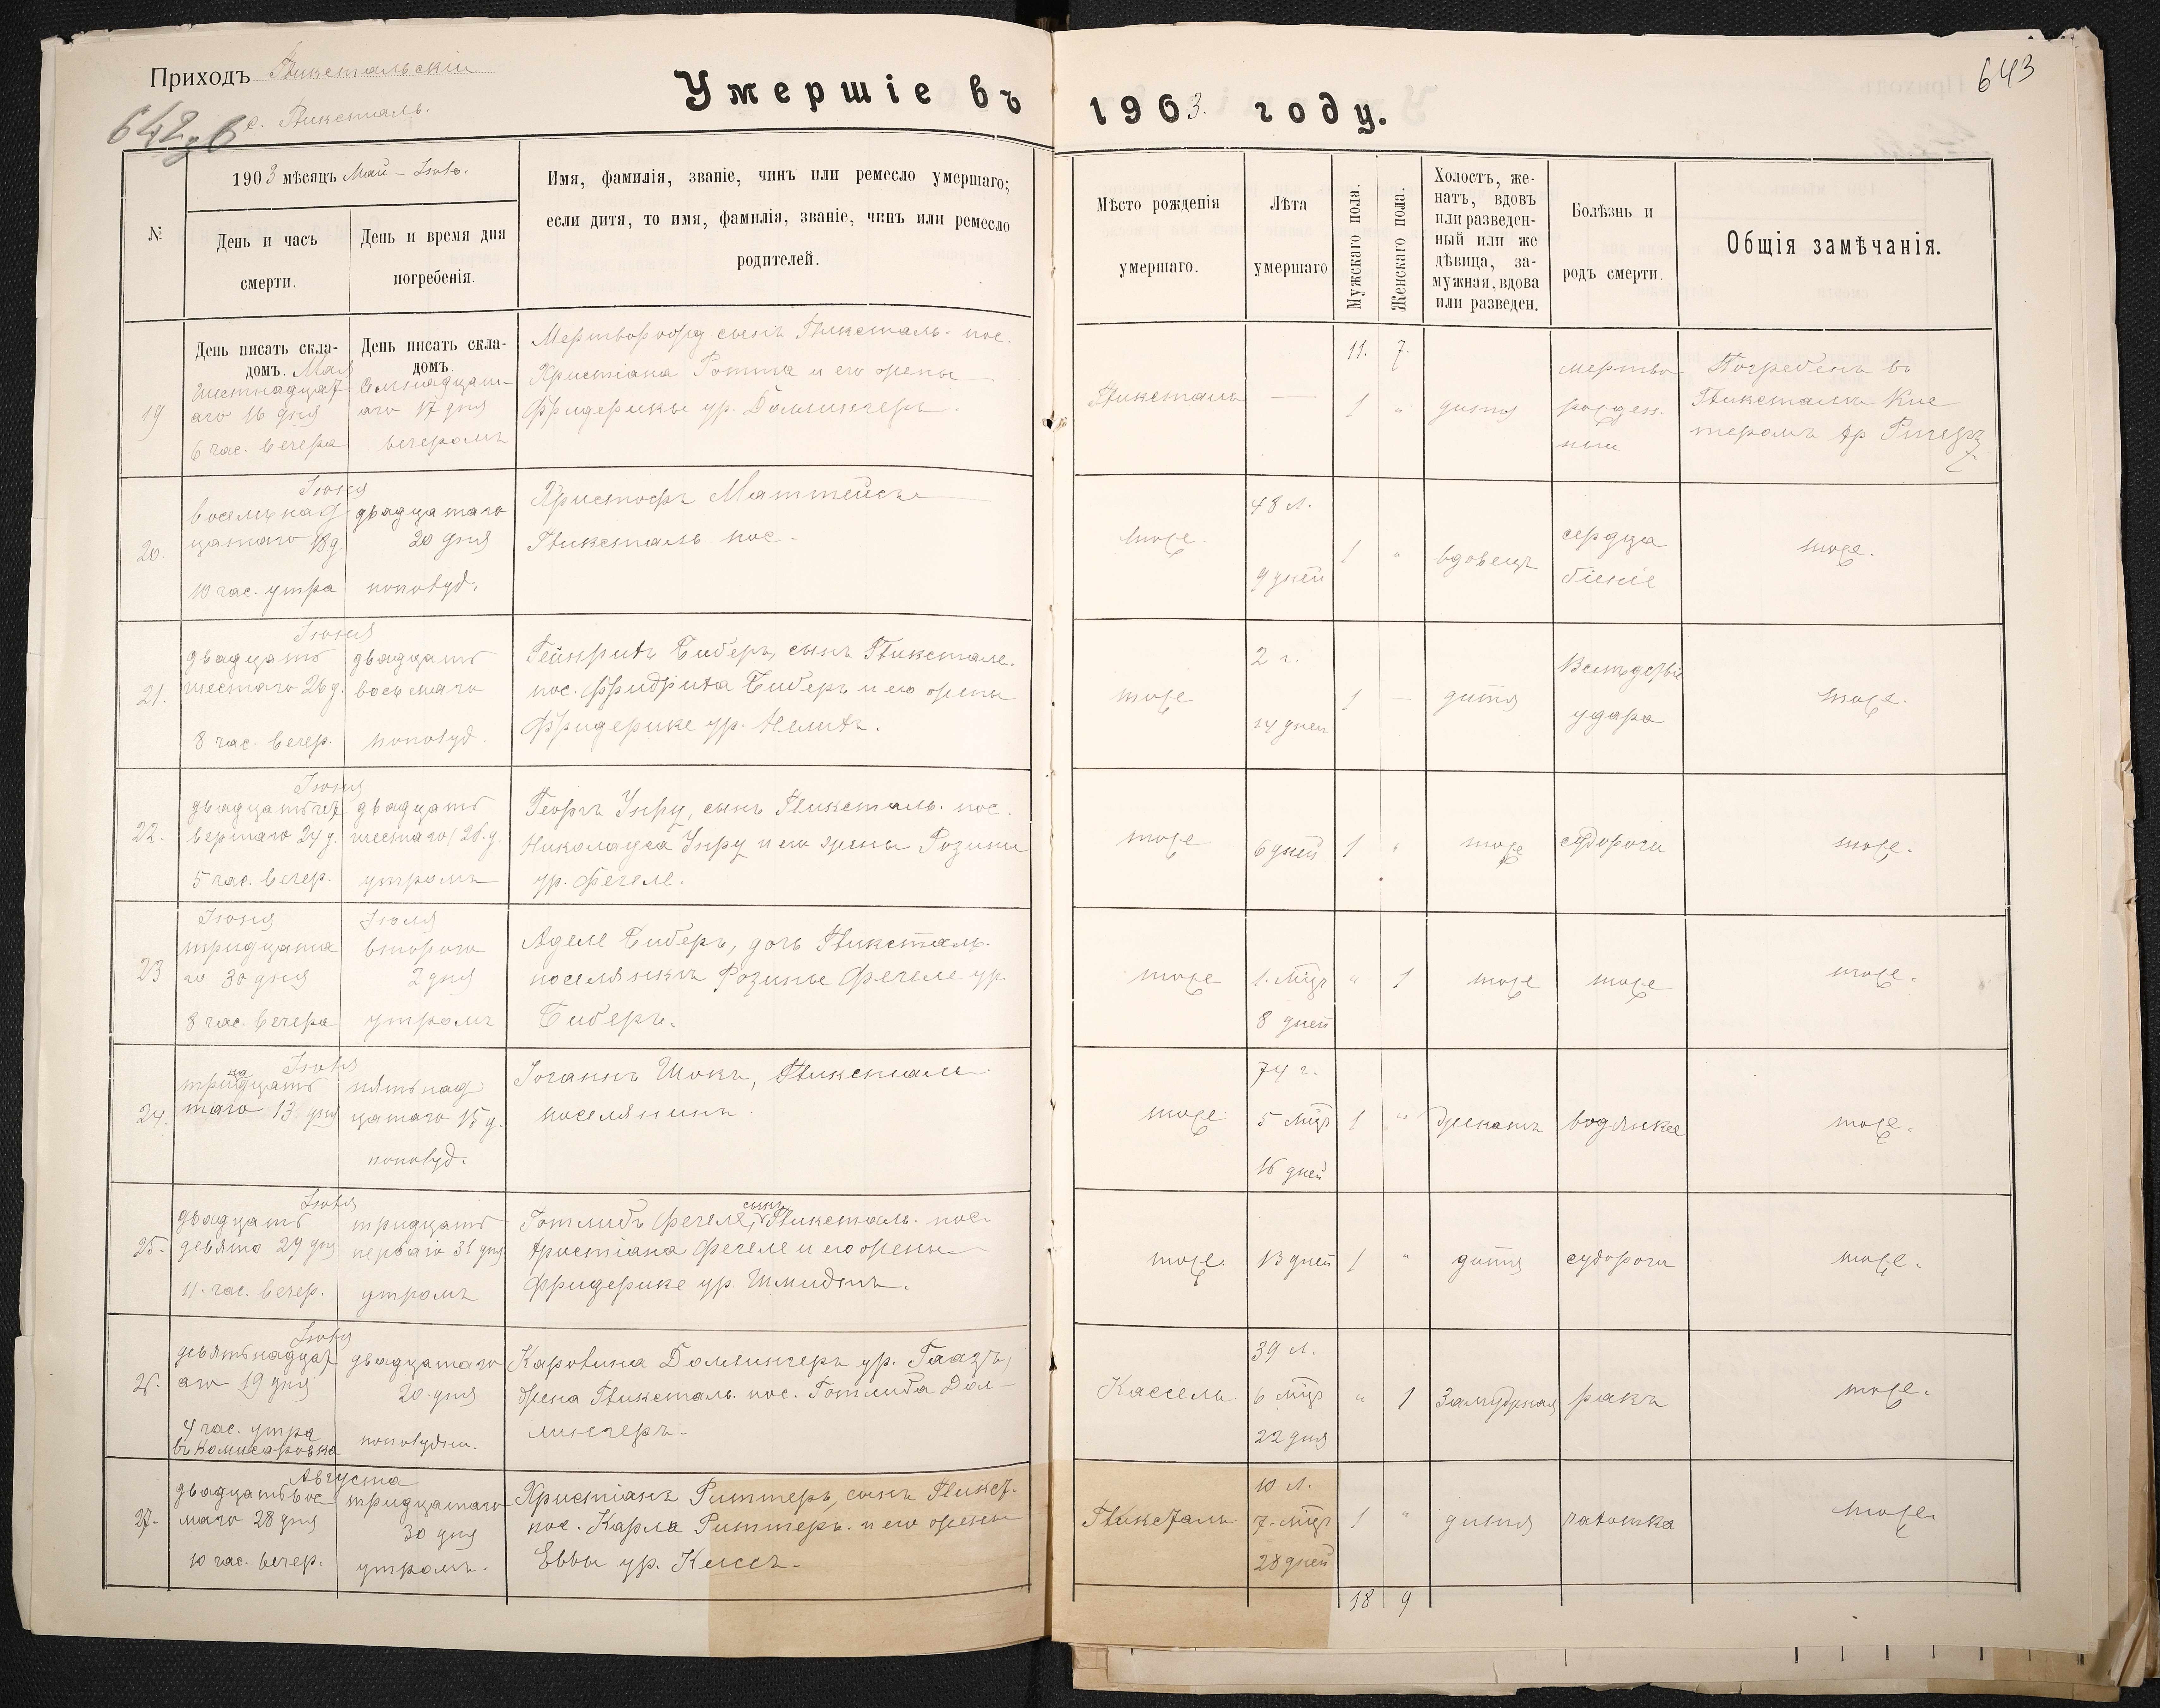 Приходъ Глюкстальскій
с. Глюксталь.
642 об
643
Умершіе въ 1903. году.
№
1903 мѣсяцъ Май – Іюль.
День и часъ
смерти.
День и время дня
погребенія.
Имя, фамилія, званіе, чинъ или ремесло умершаго;
если дитя, то имя, фамилія, званіе, чинъ или ремесло
родителей.
Мѣсто рожденія
умершаго.
Лѣта
умершаго
Мужскаго пола.
Женскаго пола.
Холостъ, же-
натъ, вдовъ
или разведен-
ный или же
дѣвица, за-
мужная, вдова
или разведен.
Болѣзнь и
родъ смерти.
Общія замѣчанія.
День писать скла-
домъ. Мая
День писать скла-
домъ.
11. 7.
19
шестнадцат
аго 16 дня
6 час. вечера
семнадцат-
аго 17 дня
вечеромъ
Мертворожд сынъ Глюксталь. пос.
Христіана Ротта и его жены
Фридерики ур. Доллингеръ.
Глюксталь
—
1
"
дитя
мертво
рожден.
ный
Погребенъ въ
Глюксталѣ Кис
теромъ
20.
Іюня
восемнад
цатаго 18 д.
10 час. утра
двадцатаго
20 дня
пополуд.
Христофъ Маттейсъ
Глюксталь пос.
тоже.
48 л.
9 дней
1
"
вдовецъ
сердца
біеніе
тоже.
21.
Іюня
двадцать
шестаго 26 д.
8 час. вечер.
двадцать
восьмаго
пополуд.
Гейнрихъ Биберъ, сынъ Глюксталь.
пос. Фридриха Биберъ и его жены
Фридерике ур. Нелихъ.
тоже
2 г.
14 дней
1
—
дитя
Вслѣдствіе
удара
тоже.
22.
Іюня
двадцать чет
вертаго 24 д.
5 час. вечер.
двадцать
шестаго 26. д.
утромъ
Георгъ Унру, сынъ Глюксталь. пос.
Николауса Унру и его жены Розины
ур. Фегеле.
тоже
6 дней
1
"
тоже
судороги
тоже.
23
Іюня
тридцата
го 30 дня
8 час. вечера
Іюля
второго
2 дня
утромъ
Аделе Биберъ, дочь Глюксталь.
поселянкѣ Розинѣ Фегеле ур.
Биберъ.
тоже
1. мѣц
8 дней
"
1
тоже
тоже
тоже.
24.
Іюля
тринадцать
таго 13 дня
пятьнад
цатаго 15 д.
пополуд.
Іоганнъ Шокъ, Глюксталь
поселянинъ.
тоже
74 г.
5 мѣц
16 дней
1
"
женатъ
водянка
тоже.
25.
Іюля
двадцать
девято 29 дня
11. час. вечер.
тридцать
первого 31 дня
утромъ
Готлибъ Фегеле, сынъ Глюксталь. пос.
Христіана Фегеле и его жены
Фридерике ур. Шмидтъ.
тоже.
13 дней
1
"
дитя
судороги
тоже.
26.
Іюля
девятьнадцат
аго 19 дня
4 час. утра
въ Комисаровка
двадцатаго
20. дня
пополудни.
Каролина Доллингеръ ур. Гаазъ,
жена Глюксталь. пос. Готлиба Дол-
лингеръ.
Кассель
39 л.
6 мѣц
22 дня
"
1
Замужная
ракъ
тоже.
27.
Августа
двадцать вос
маго 28 дня
10 час. вечер.
тридцатаго
30 дня
утромъ.
Христіанъ Риттеръ, сынъ Глюкст.
пос. Карла Риттеръ. и его жены
Еввы ур. Киссъ.
Глюксталь.
10 л.
7. мѣц
28 дней
1
"
дитя
чахотка
тоже.
18 9